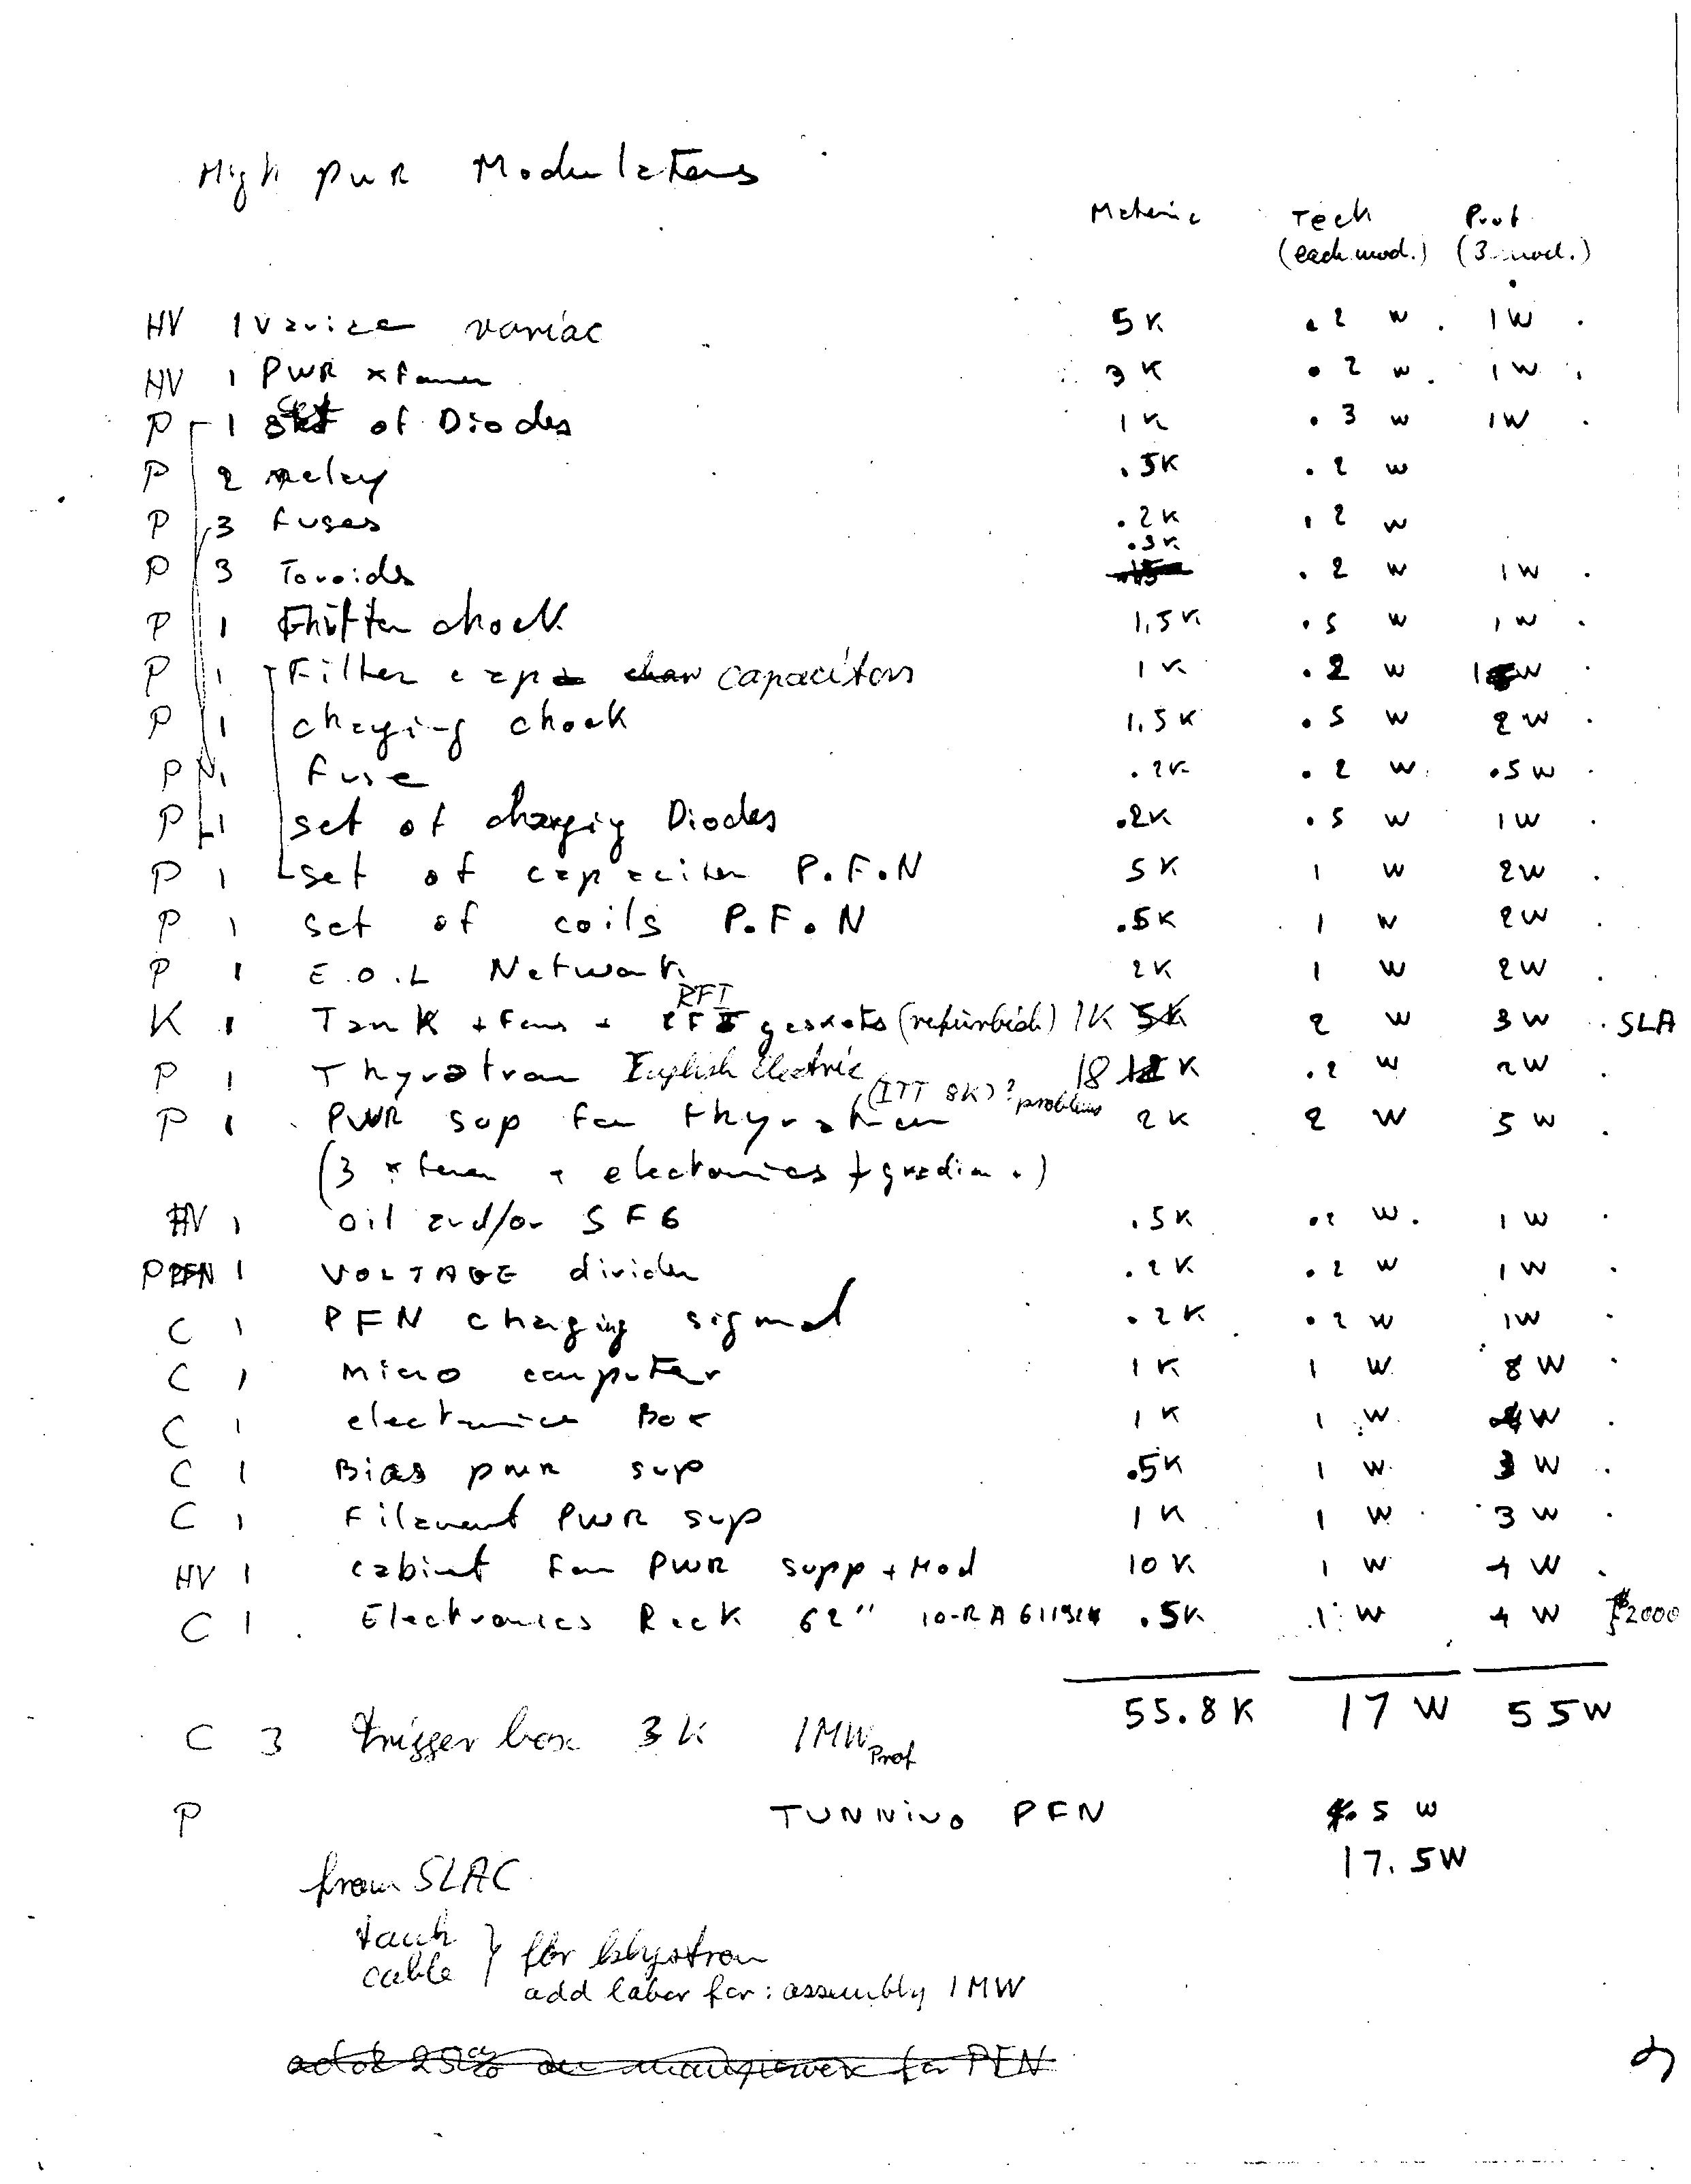 High PWR Modulators
Materic Tech Prof
(each mod.) (3 mod.)
HV 1 Variac variac 5K .2 W 1W
HV 1 PWR xfamer 3K .2 W 1W
P 1 set of Diodes 1K .3 W 1W
P 2 relay .5K .2 W
P 3 fuses .2K .2 W
P 3 Toroids .3K .2 W 1W
P 1 chock 1.5K .5 W 1W
P 1 Filter cap capacitors 1K .2 W 1 W
P 1 charging chock 1.5K .5 W 2W
P 1 fuse .2K .2 W .5W
P 1 set of charging Diodes .2K .5 W 1W
P 1 set of capaciter P.F.N 5K 1 W 2W
P 1 set of coils P.F.N .5K 1 W 2W
P 1 E.O.L Network 2K 1 W 2W
K 1 Tank + fans + RFI gaskets (refurbish) 1K 5K 2 W 3W SLA
P 1 Thyratron English Electric 18 K .2 W 2W
(ITT 8K)? problems
P 1 PWR sup for thyratron 2K 2 W 5W
(3 xfemer + electonics + gradin.)
HV 1 oil and/or SF6 .5K .2 W. 1W
P PFN 1 VOLTAGE divider .2K .2 W 1W
C 1 PFN charging signal .2K .2 W 1W
C 1 micro computer 1K 1 W 8W
C 1 electronics Box 1K 1 W 4W
C 1 Bias pwr sup .5K 1 W 3W
C 1 Filament PWR sup 1K 1 W 3W
HV 1 cabint for PWR supp + Mod 10K 1 W 4W
C 1 Electronics Rack 62" 10-RA611924 .5K .1 W 4W $2000
55.8K 17 W 55W
C 3 trigger box 3K 1MW Prof
P TUNNING PFN .5 W
17.5W
from SLAC
tank
cable } for klystron
add labor for: assembly 1MW
add 25% on manpower for PFN